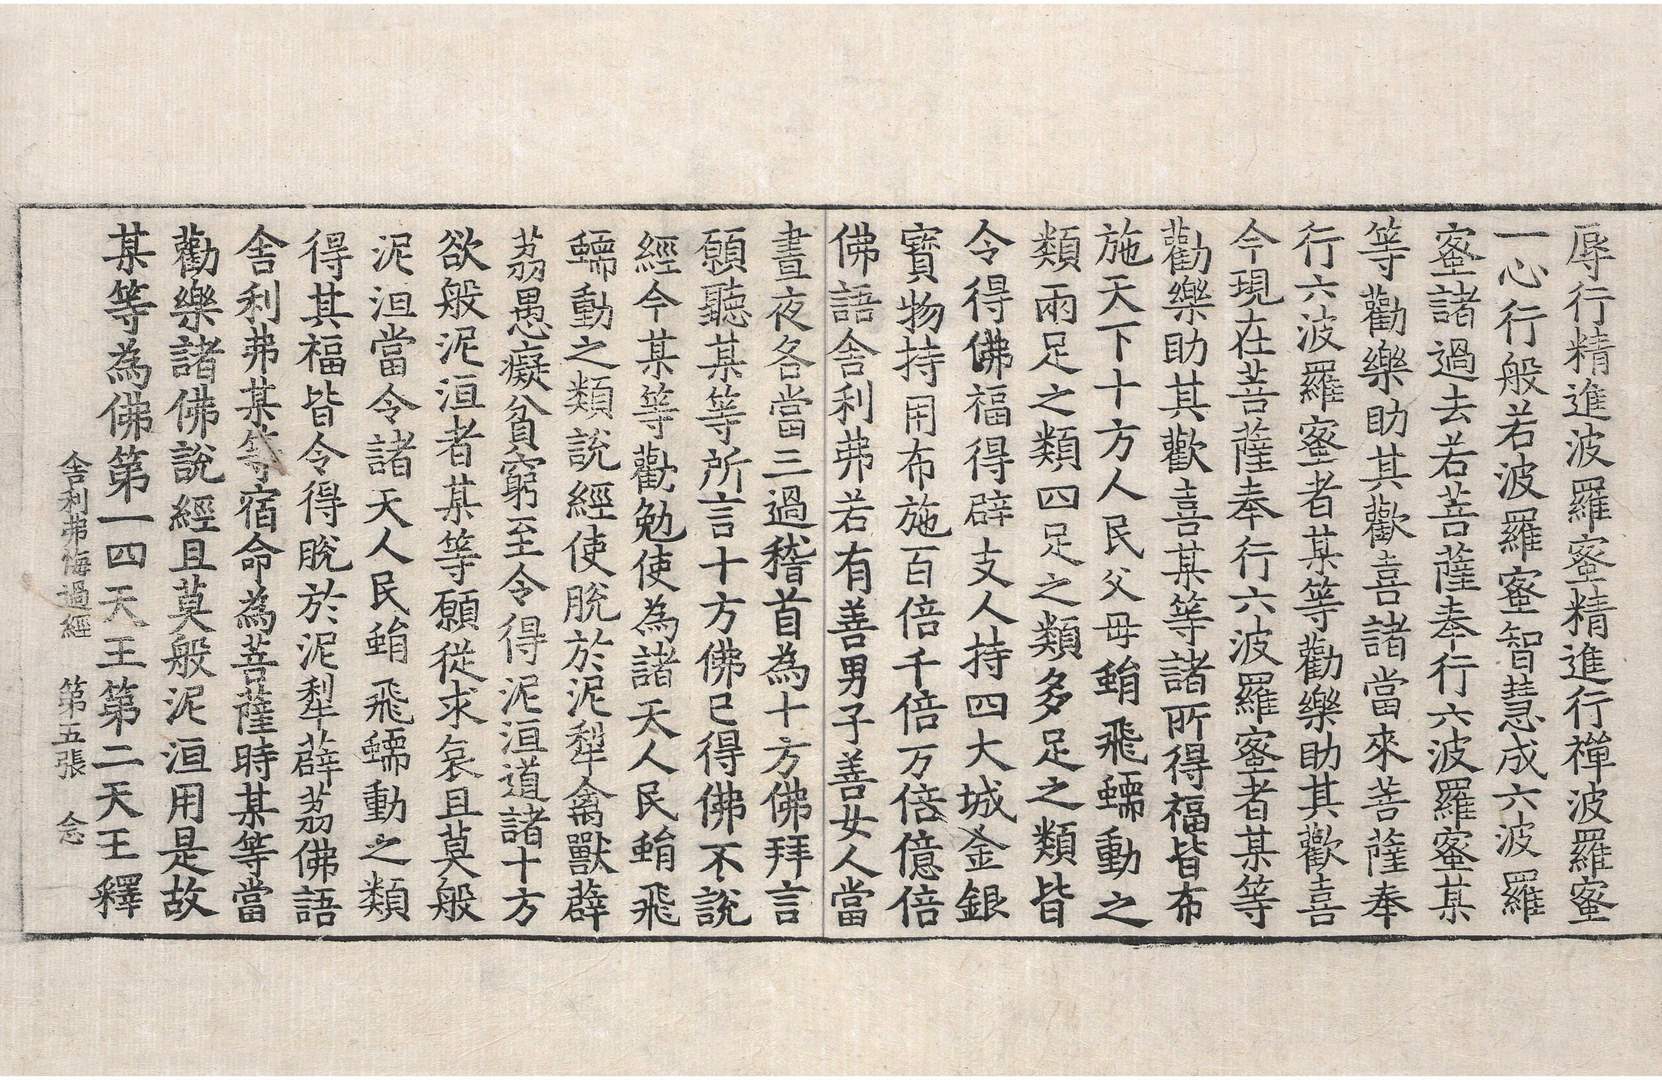 辱行精進波羅蜜精進行禪波羅蜜
一心行般若波羅蜜智慧成六波羅
蜜諸過去若菩薩奉行六波羅蜜某
等勸樂助其歡喜諸當來菩薩奉
行六波羅蜜者某等勸樂助其歡喜
今現在菩薩奉行六波羅蜜者某等
勸樂助其歡喜某等諸所得福皆布
施天下十方人民父母蜎飛蠕動之
類兩足之類四足之類多足之類皆
令得佛福得辟支人持四大城金銀
寶物持用布施百倍千倍万倍億倍
佛語舍利弗若有善男子善女人當
晝夜各當三過稽首為十方佛拜言
願聽某等所言十方佛已得佛不說
經今某等勸勉使為諸天人民蜎飛
蠕動之類說經使脫於泥犁禽獸薜
荔愚癡貧窮至令得泥洹道諸十方
欲般泥洹者某等願從求哀且莫般
泥洹當令諸天人民蜎飛蠕動之類
得其福皆令得脫於泥犁薜荔佛語
舍利弗某等宿命為菩薩時某等當
勸樂諸佛說經且莫般泥洹用是故
某等為佛第一四天王第二天王釋
舍利弗悔過經 第五張 念